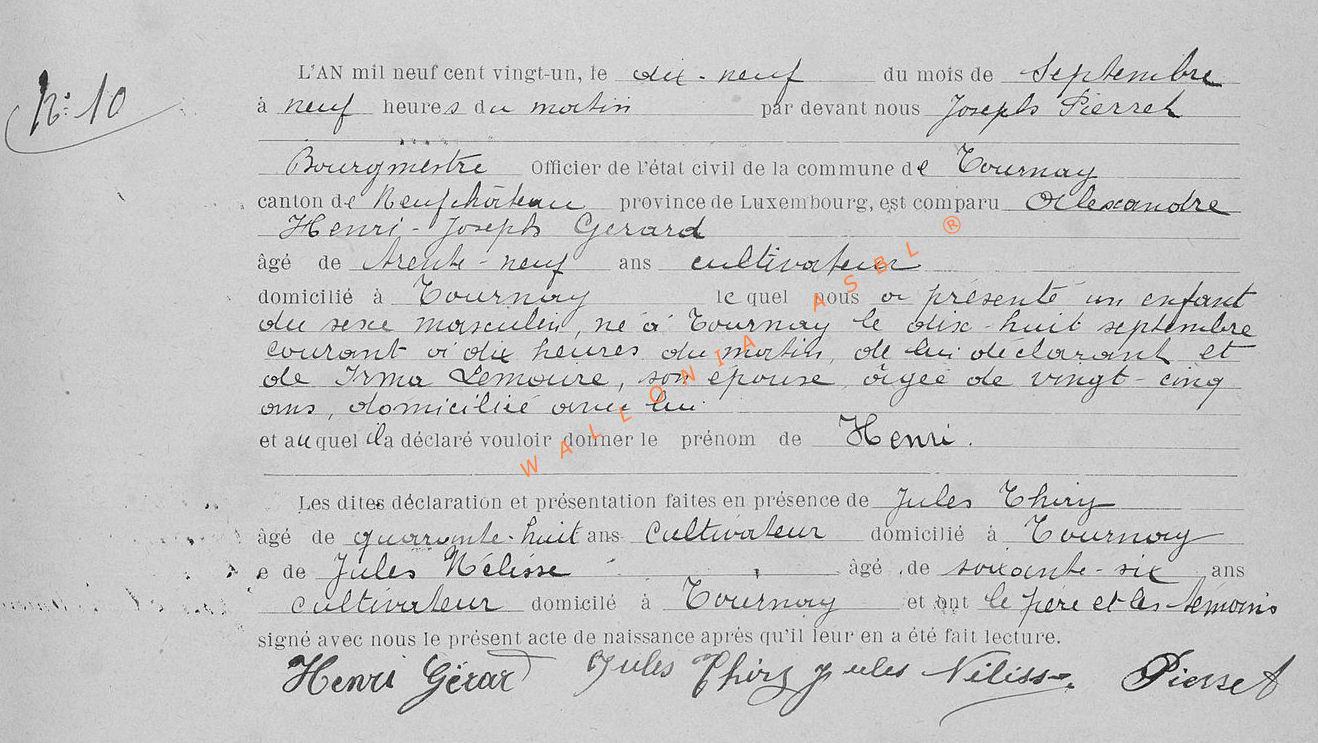 N° 10
L'AN mil neuf cent vingt-un, le dix-neuf du mois de Septembre
à neuf heures du matin par devant nous Joseph Pierret
Bourgmestre Officier de l'état civil de la commune de Tournay
canton de Neufchâteau province de Luxembourg, est comparu Alexandre
Henri-Joseph Gerard
âgé de trente-neuf ans cultivateur
domicilié à Tournay le quel nous a présenté un enfant
du sexe masculin, né à Tournay le dix-huit septembre
courant à dix heures du matin, de lui déclarant et
de Irma Lemaire, son épouse âgée de vingt-cinq
ans, domicilié avec lui
et auquel il a déclaré vouloir donner le prénom de Henri.
Les dites déclaration et présentation faites en présence de Jules Thiry
âgé de quarante-huit ans Cultivateur domicilié à Tournay
e de Jules Nélisse âgé de soixante-six ans
cultivateur domicilé à Tournay et ont le père et les témoins
signé avec nous le présent acte de naissance après qu'il leur en a été fait lecture.
Henri Gérard Jules Thiry Jules Nélisse Pierret
WALLONIA ASBL ®